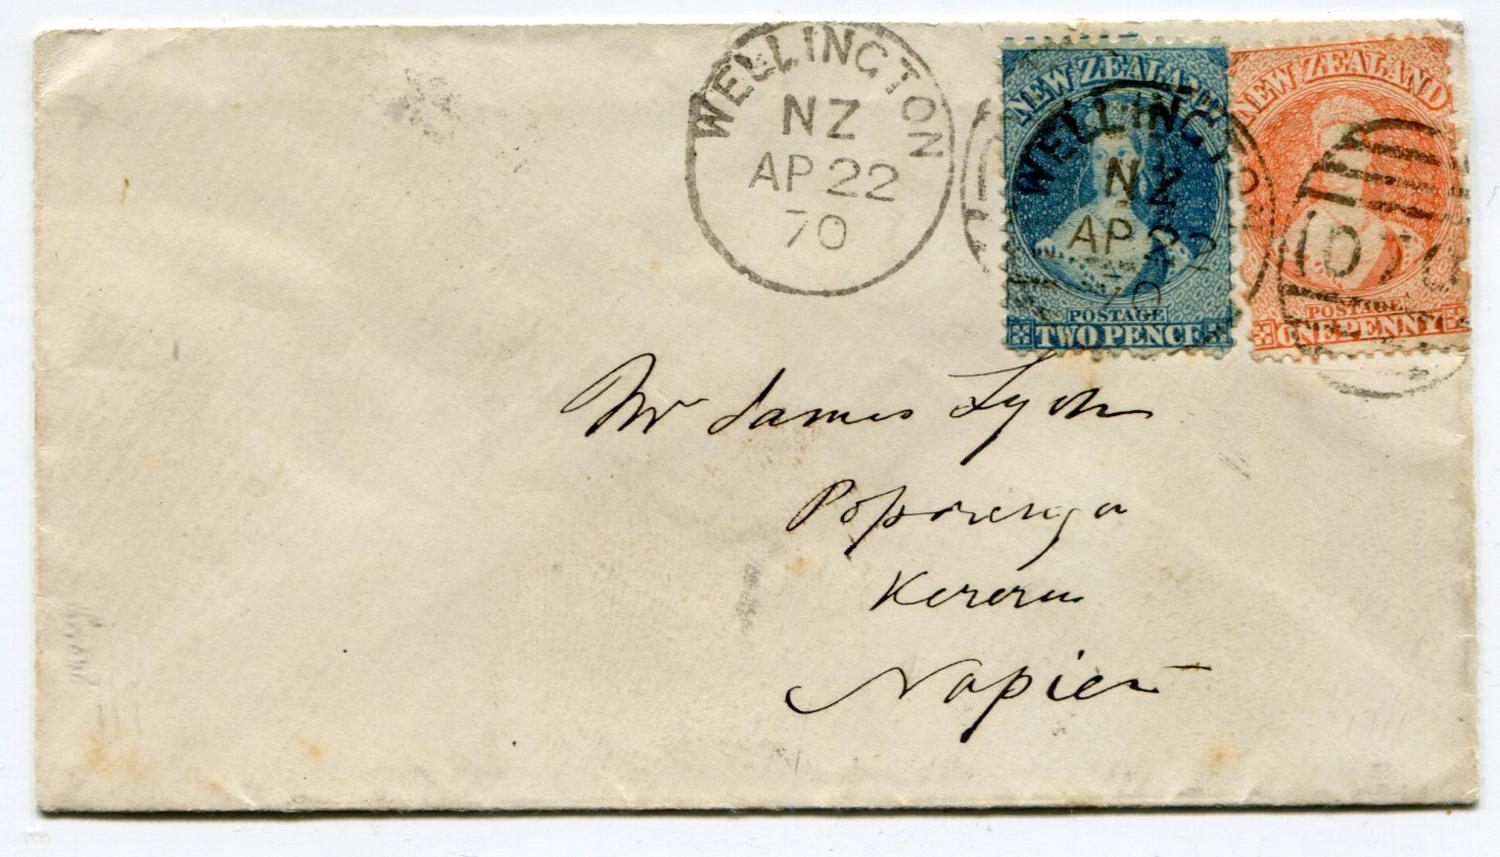 WELLINGTON
NZ
AP 22
70
NEW ZEALAND
WELLINGTON
NZ
AP 22
70
POSTAGE
TWO PENCE
NEW ZEALAND
070
POSTAGE
ONE PENNY
Mr James
Kereru
Napier